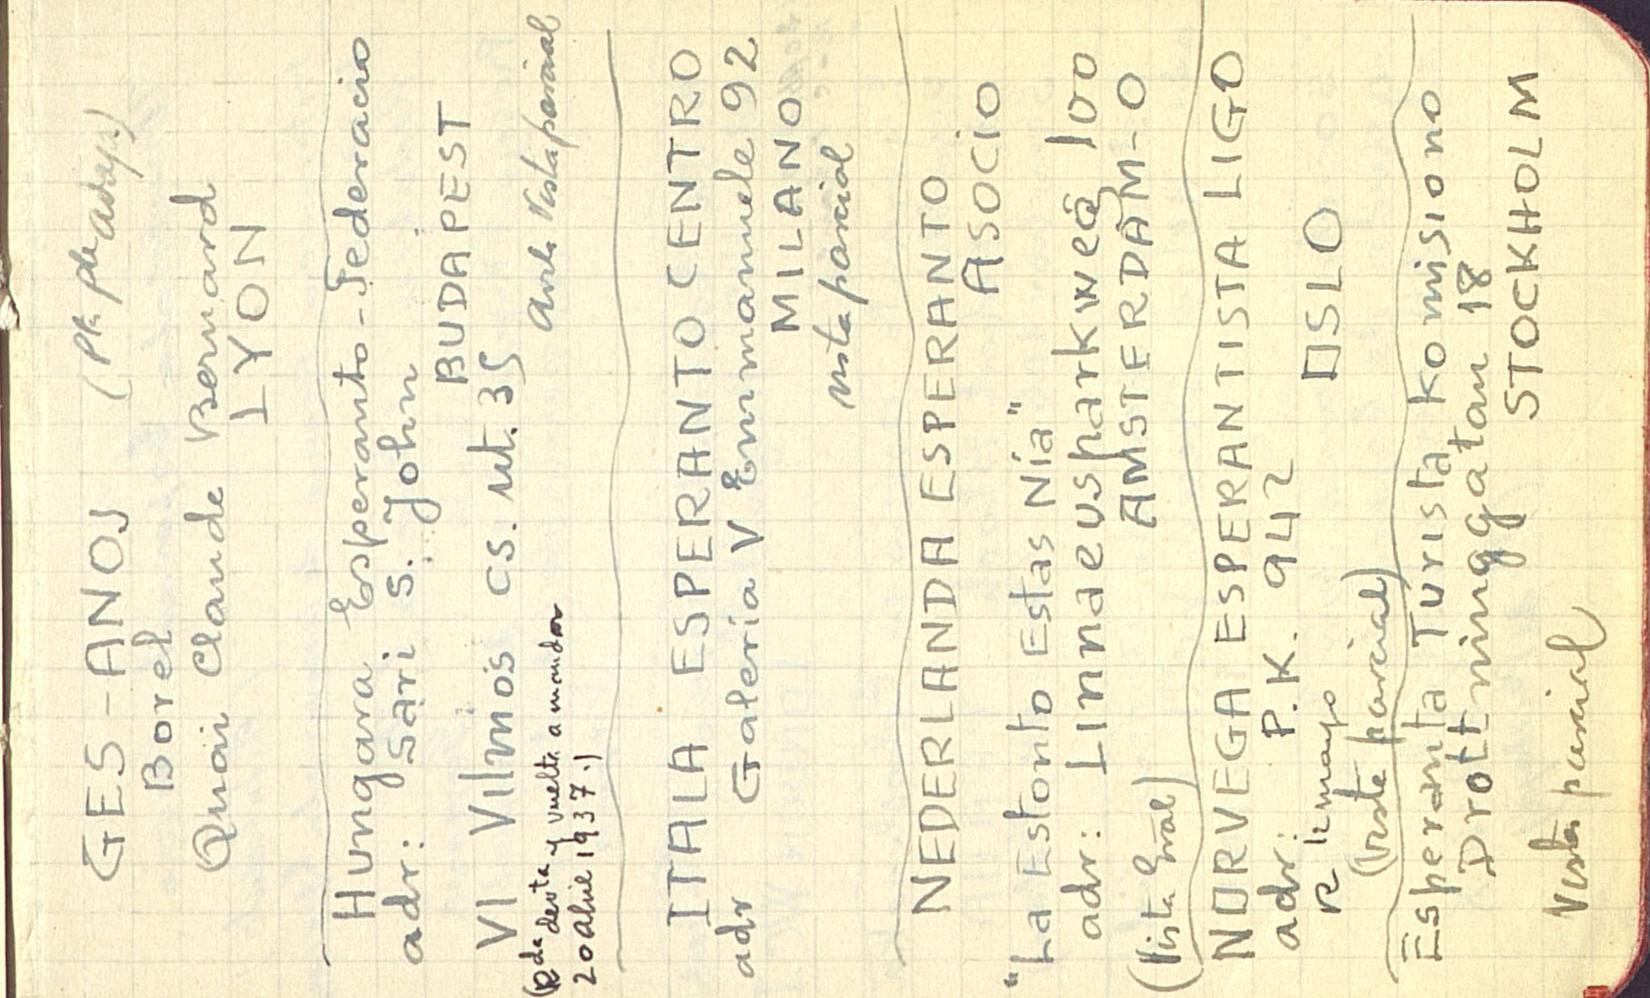 GES-ANOJ (Pk
Borel
Quai Claude Bernard
LYON
Hungara Esperanto-Federacio
adr: Sari S. John
BUDAPEST
VI Vilmos cs. ut. 35
(Rda devta y vuelta a mandar
20 abril 1937.)
Vista parcial
ITALA ESPERANTO CENTRO
adr Galeria V Emmanuele 92
MILANO
vista parcial
NEDERLANDA ESPERANTO
ASOCIO
"La Estonto Estas Nía"
adr: Linnaeusparkweg 100
AMSTERDAM-O
(Vista Gral)
NORVEGA ESPERANTISTA LIGO
adr: P.K. 942
OSLO
R 12 mayo
(Vista parcial)
Esperanta Turista Komisiono
Drottninggatan 18
STOCKHOLM
Vista parcial